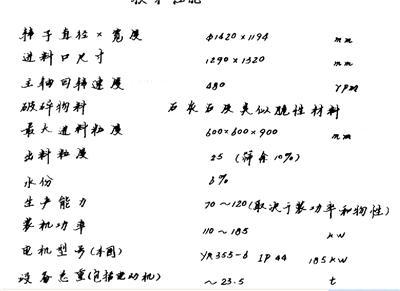 转子直径×宽度 φ1420×1194 mm
进料口尺寸 1290×1320 mm
主轴回转速度 480 rpm
破碎物料 石灰石及类似脆性材料
最大进料粒度 600×600×900 mm
出料粒度 25 (筛余10%)
水份 6%
生产能力 70～120(取决于装功率和物性)
装机功率 110～185 KW
电机型号(本图) YR355-6 IP44 185KW
设备总重(包括电动机) ～23.5 t